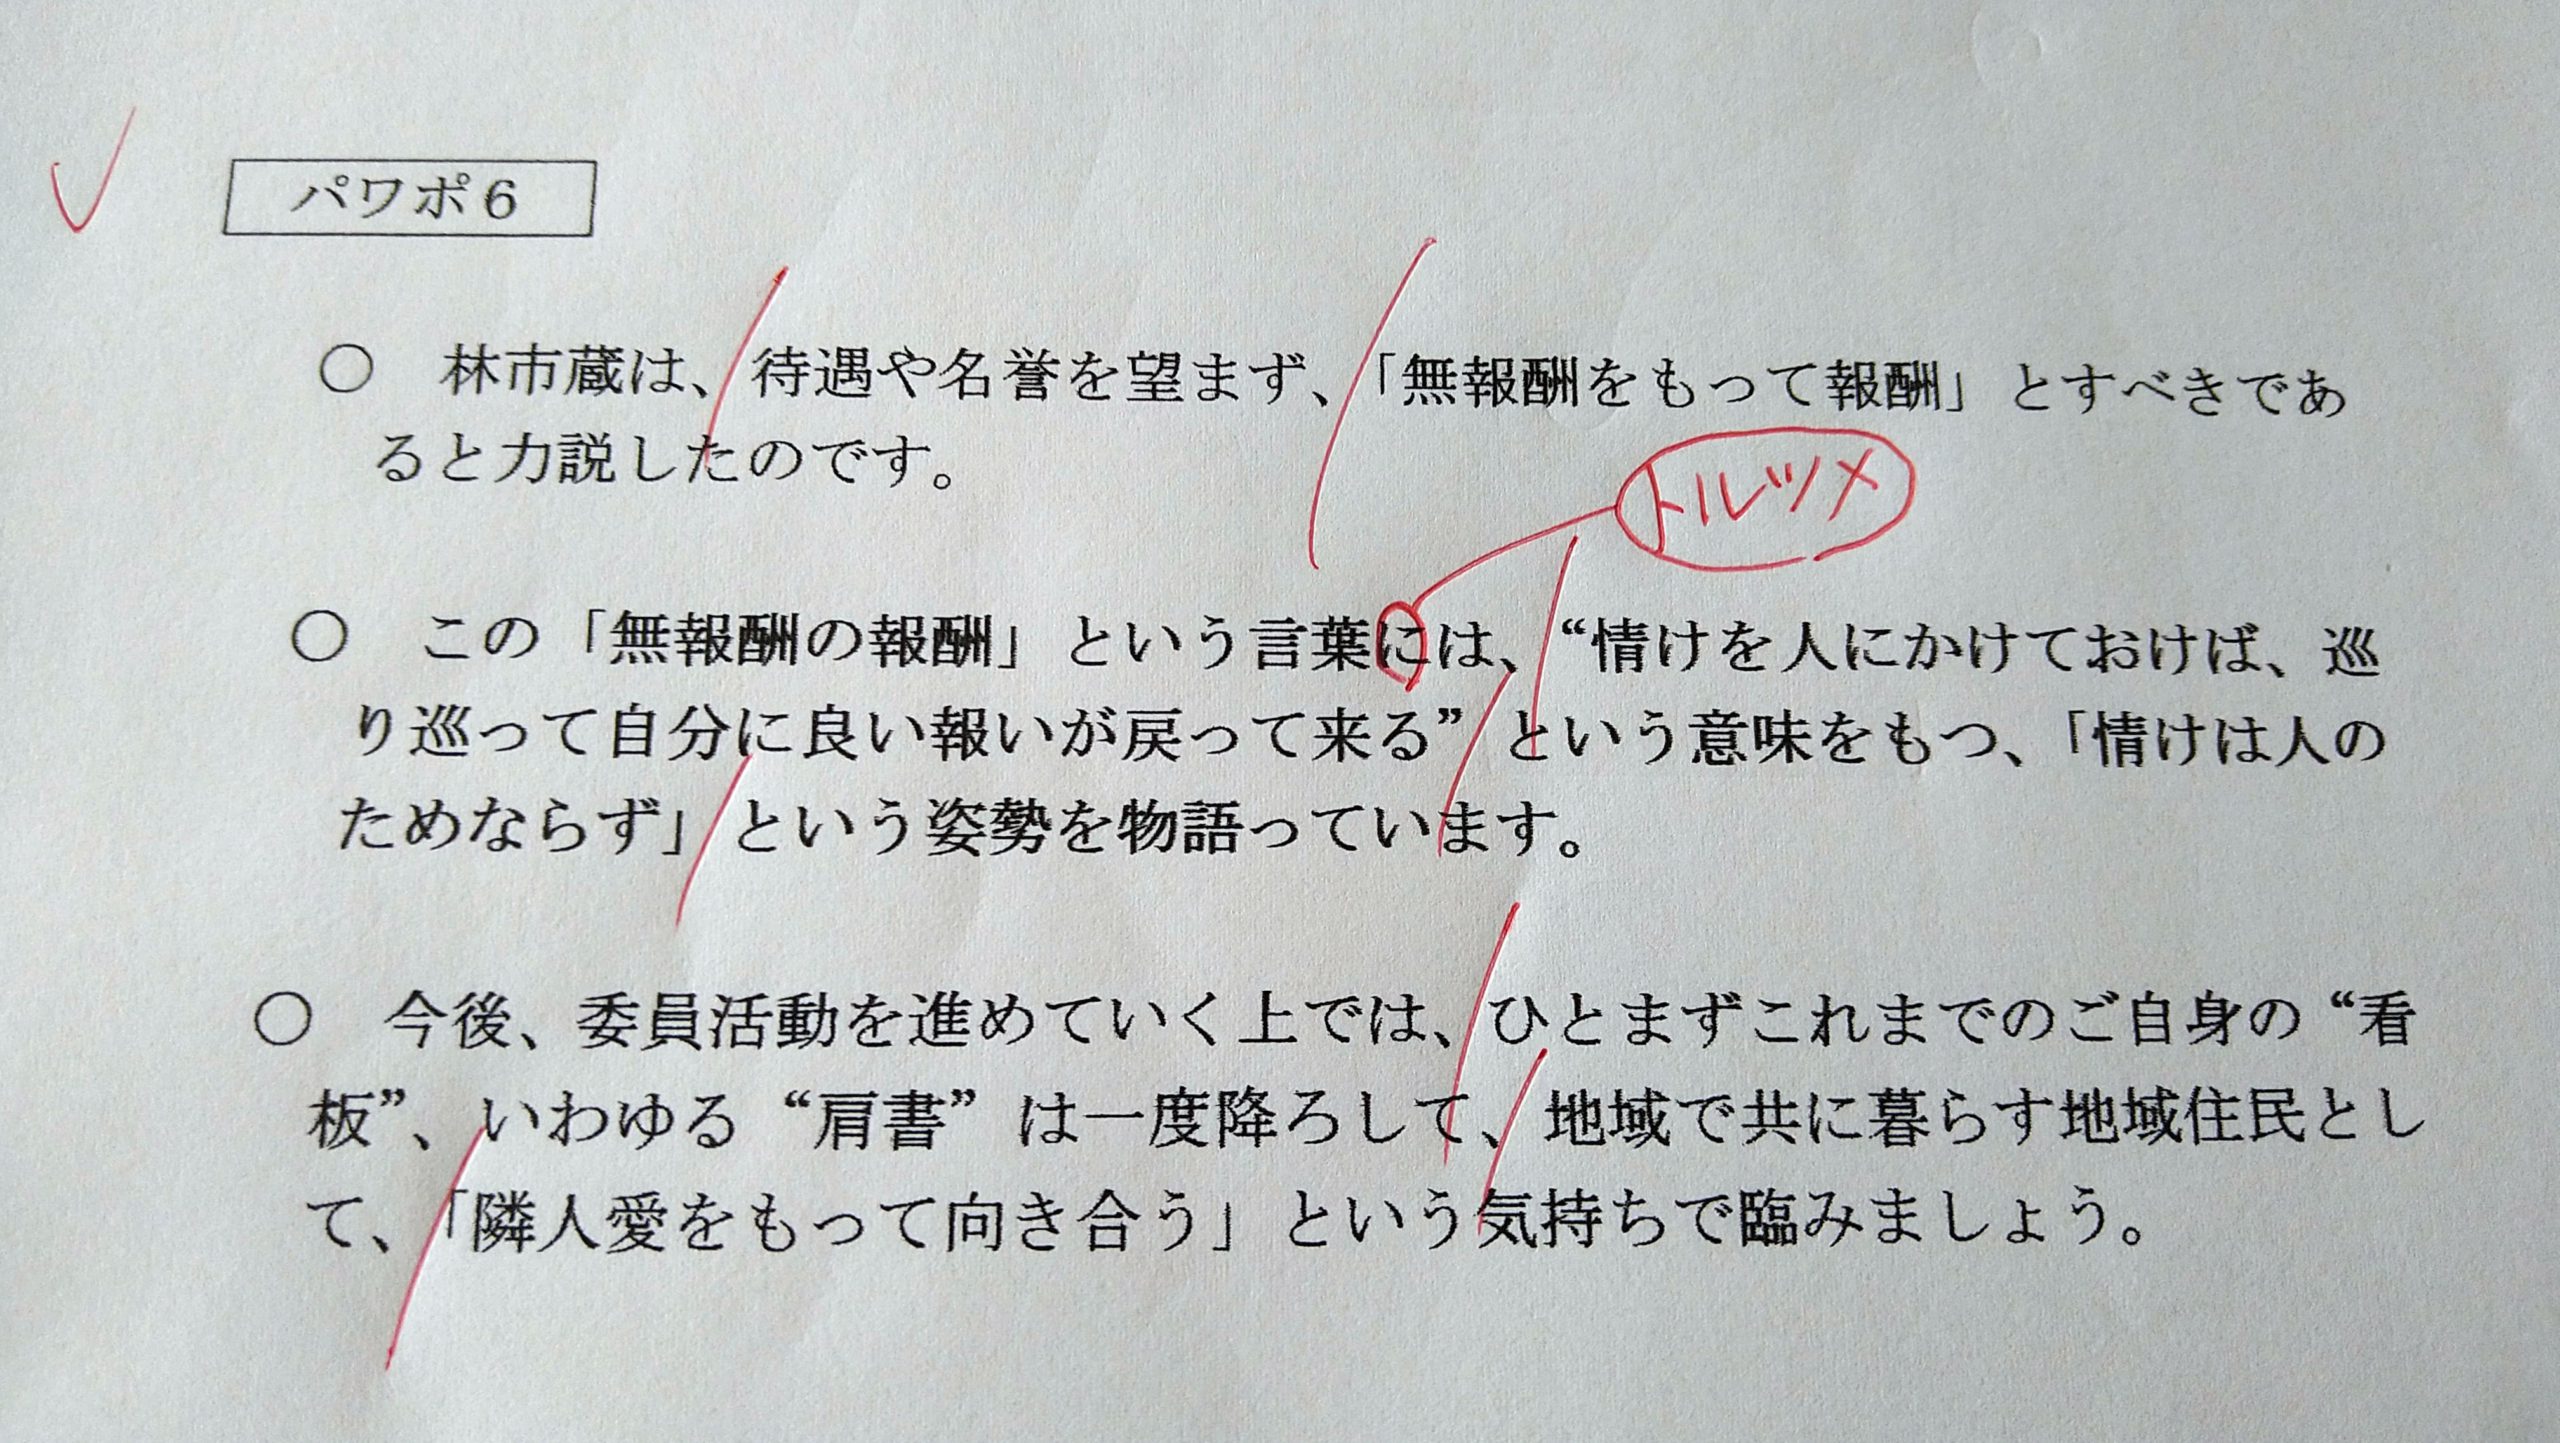 パワポ６
○　林市蔵は、待遇や名誉を望まず、「無報酬をもって報酬」とすべきであ
ると力説したのです。
トルツメ
○　この「無報酬の報酬」という言葉には、“情けを人にかけておけば、巡
り巡って自分に良い報いが戻って来る”という意味をもつ、「情けは人の
ためならず」という姿勢を物語っています。
○　今後、委員活動を進めていく上では、ひとまずこれまでのご自身の“看
板”、いわゆる“肩書”は一度降ろして、地域で共に暮らす地域住民とし
て、「隣人愛をもって向き合う」という気持ちで臨みましょう。